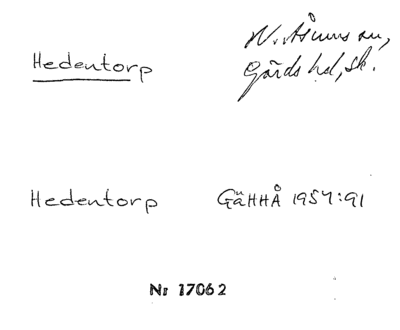 Hedentorp
N. Åsums sn,
Gärds hd, Sk.
Hedentorp GäHHÅ 1957:91
Nr 17062